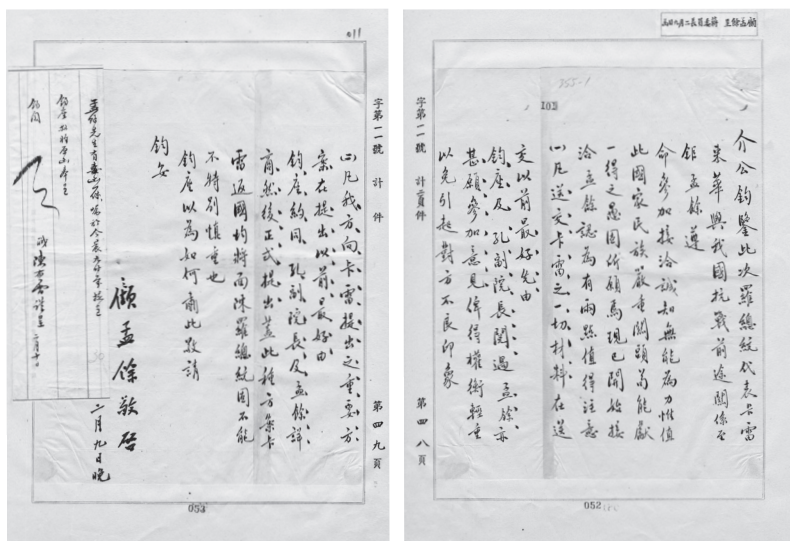 顧孟餘呈蔣委員長二月九日
255-1
103
介公鈞鑒此次羅總統代表卡雷
來華與我國抗戰前途關係至
鉅孟餘遵
命參加接洽誠知無能為力惟值
此國家民族嚴重關頭苟能獻
一得之愚固所願焉現已開始接
洽孟餘認為有兩點值得注意
㈠凡送交卡雷之一切材料在送
交以前最好先由
鈞座及孔副院長閱過孟餘亦
甚願參加意見俾得權衡輕重
以免引起對方不良印象
字第一一號 計 頁件
第四八頁
052
011
字第一一號 計 件
第四九頁
㈡凡我方向卡雷提出之重要方
案在提出以前最好由
鈞座約同孔副院長及孟餘詳
商然後正式提出蓋此種方案卡
雷返國均將面陳羅總統固不能
不特別慎重也
鈞座以為如何肅此敬請
鈞安
顧孟餘敬啓
二月九日晚
鈞座
鈞閱
職陳布雷謹呈 二月十日
053